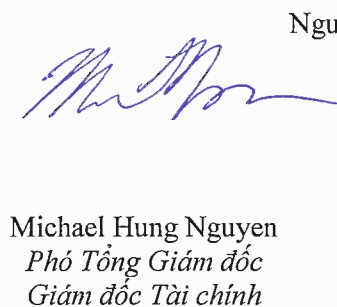 Ngu
Michael Hung Nguyen
Phó Tổng Giám đốc
Giám đốc Tài chính